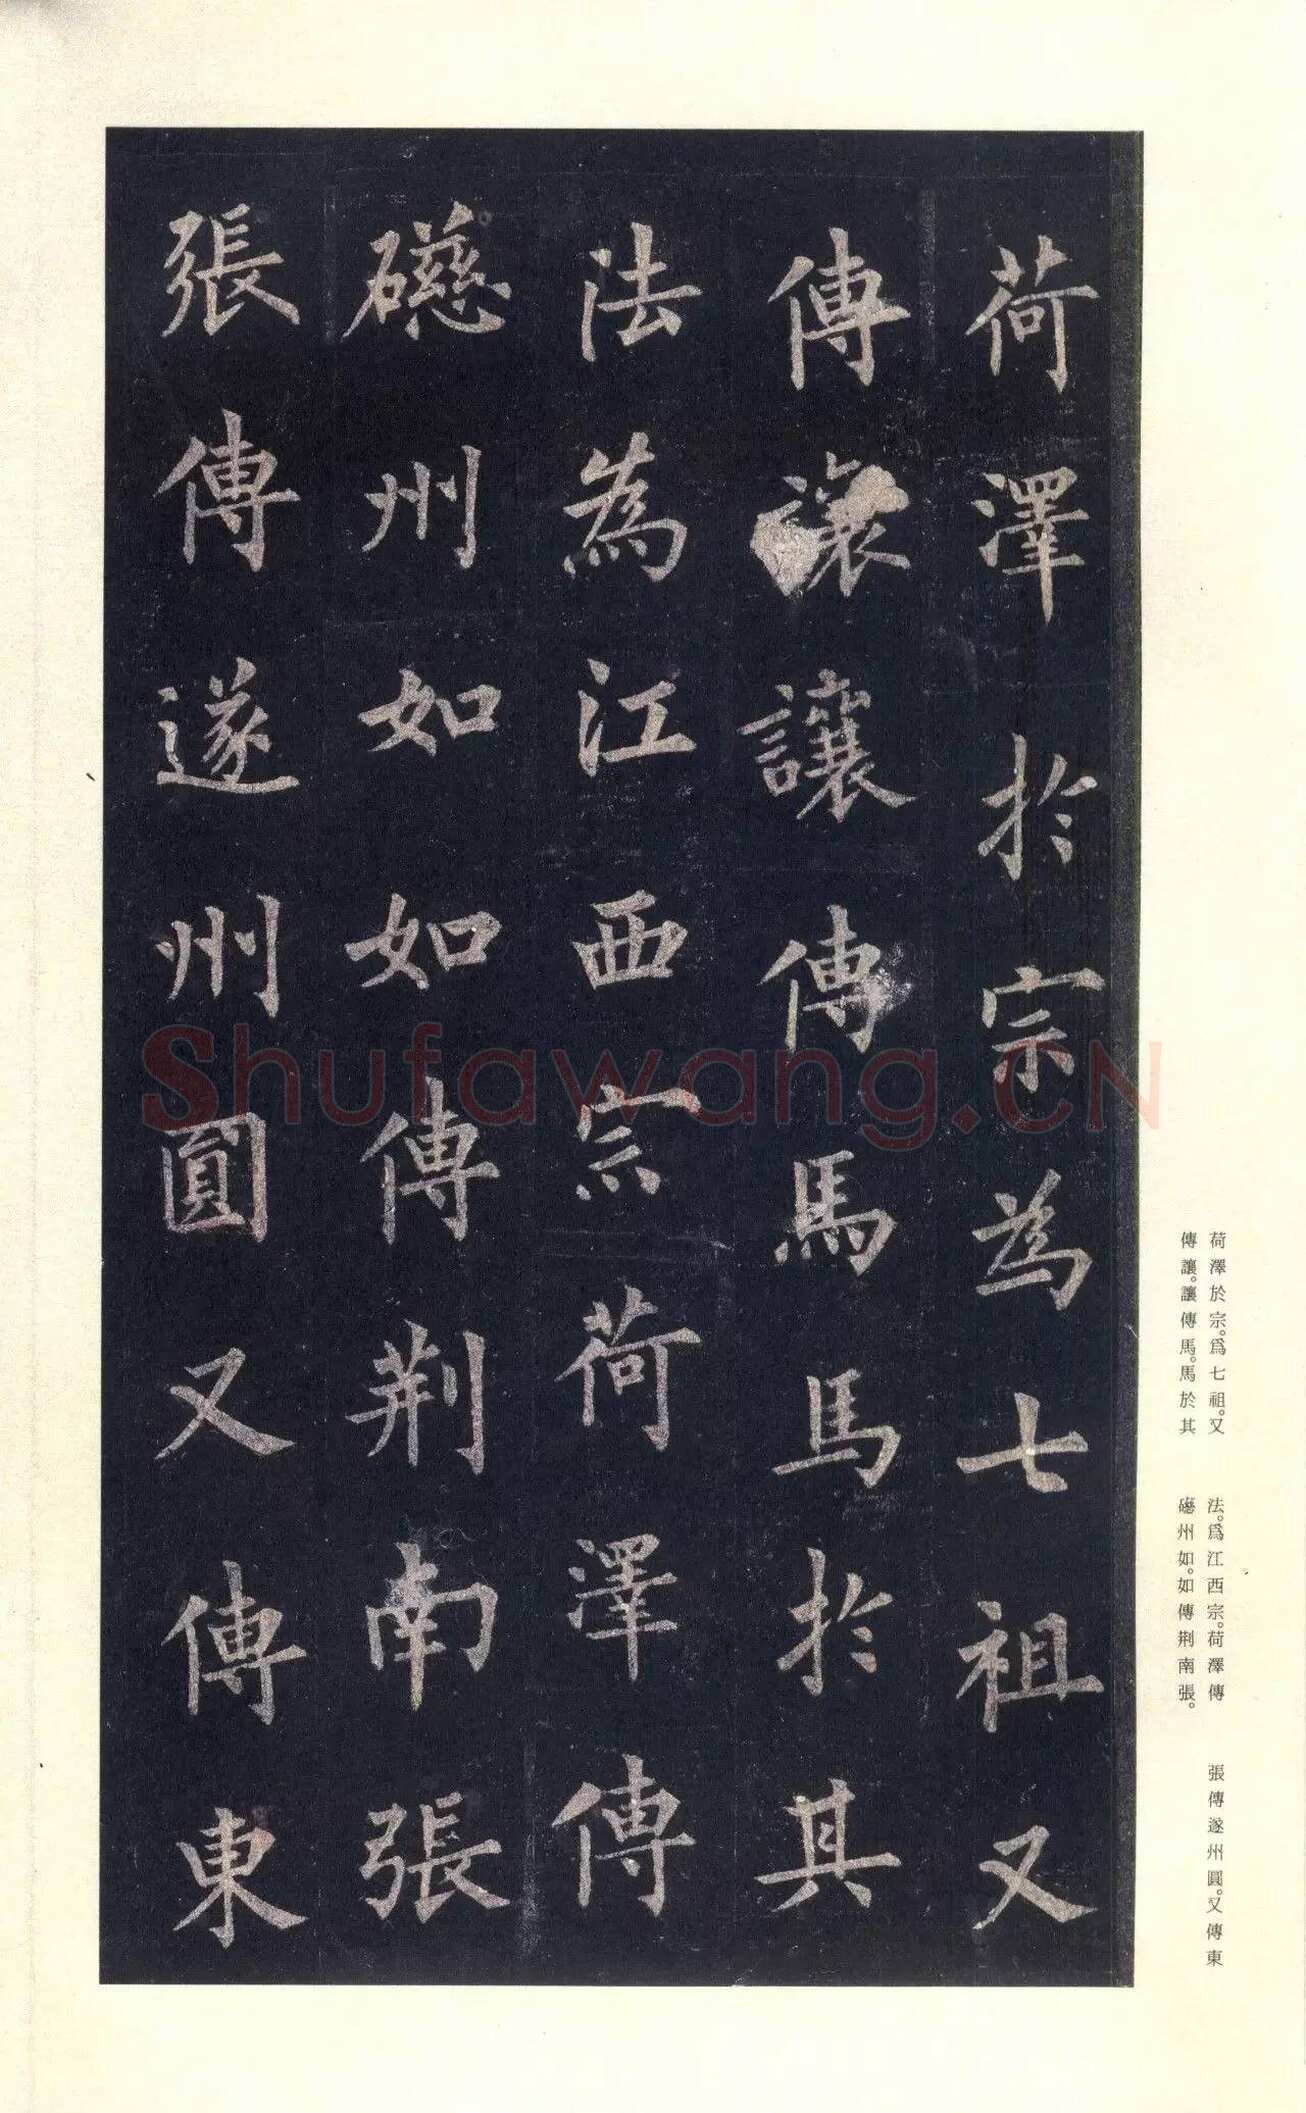 荷澤於宗為七祖又
傳讓讓傳馬馬於其
法為江西宗荷澤傳
礠州如如傳荆南張
張傳遂州圓又傳東
荷澤於宗。爲七祖。又
傳讓。讓傳馬。馬於其
法。爲江西宗。荷澤傳
礠州如。如傳荆南張。
張傳遂州圓。又傳東
Shufawang.CN